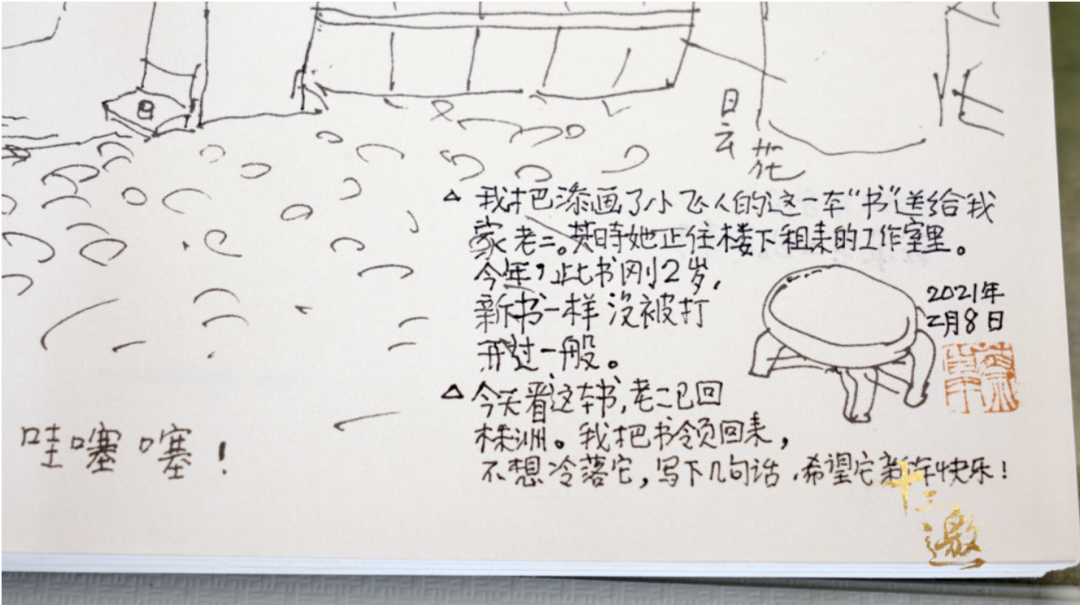 昙
花
△ 我把添画了小飞人的这一本“书”送给我
家老二。其时她正住楼下租来的工作室里。
今年，此书刚2岁，
新书一样没被打
开过一般。
2021年
2月8日
△ 今天看这本书，老二已回
株洲。我把书领回来，
不想冷落它，写下几句话，希望它新年快乐！
哇噻噻！
十三邀